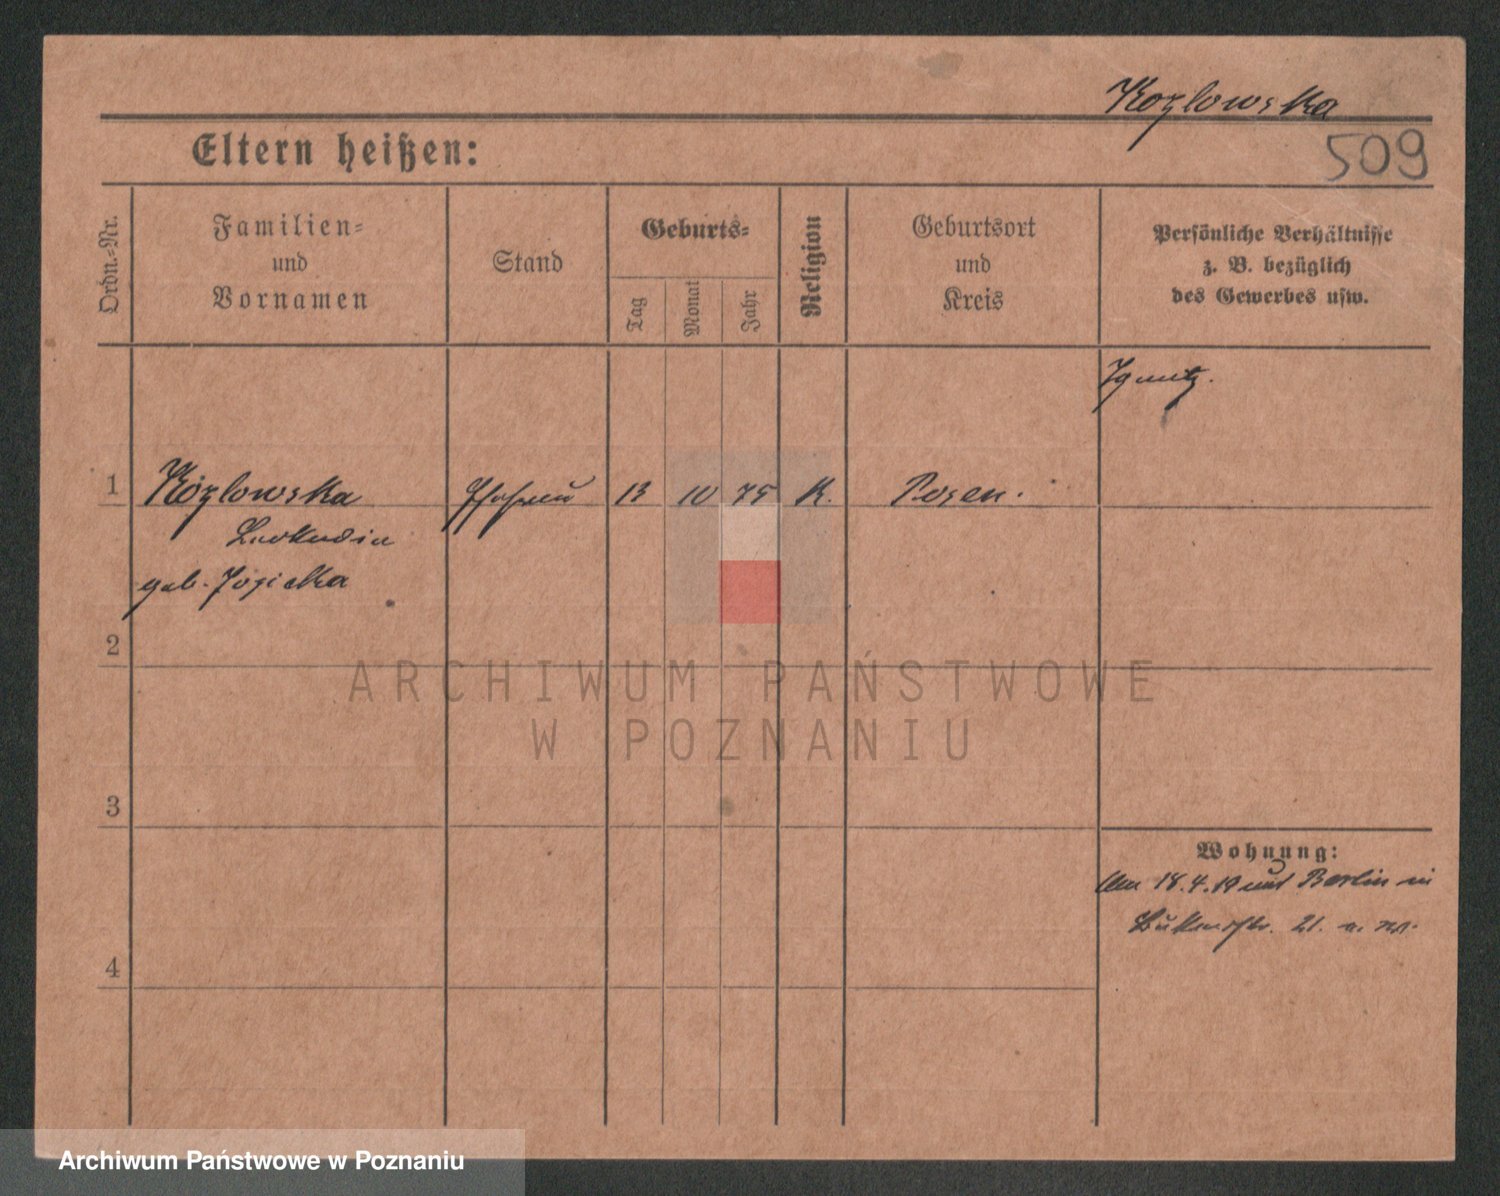 Kozlowska
Eltern heißen:
509
Ordn.-Nr.
Familien-
und
Vornamen
Stand
Geburts-
Tag
Monat
Jahr
Religion
Geburtsort
und
Kreis
Persönliche Verhältnisse
z. B. bezüglich
des Gewerbes usw.
1
Kozlowska
13
10
75
K.
Posen.
Leokadia
geb.
2
3
4
Wohnung:
Am 18.4.19 Berlin
21.
ARCHIWUM PAŃSTWOWE
W POZNANIU
Archiwum Państwowe w Poznaniu